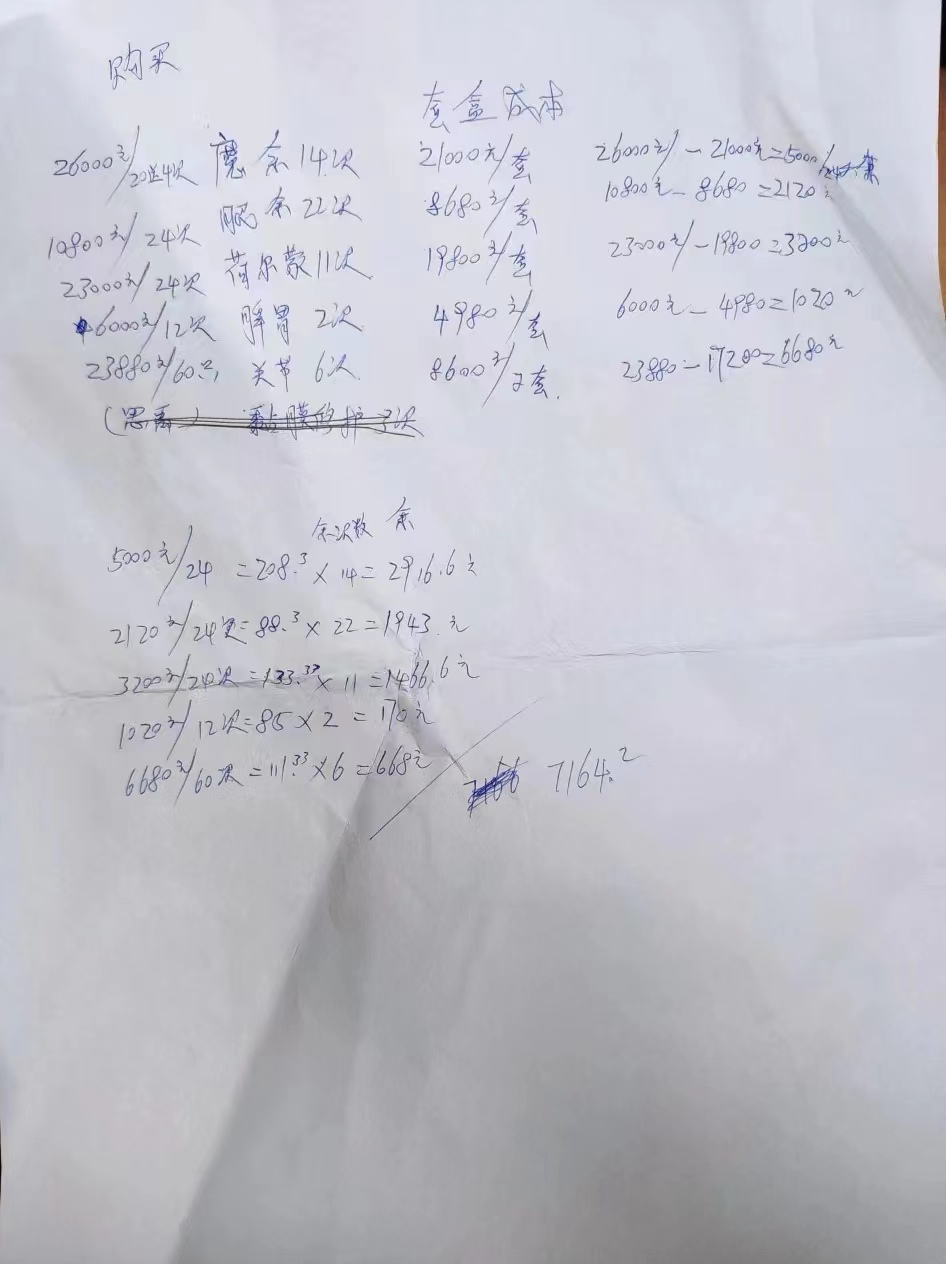 购买
套盒成本
26000元/20送4次 魔余14次 21000元/套 26000元/-21000元=5000/24次
10800元/24次 余22次 8680元/套 10800元-8680=2120元
23000元/24次 荷尔蒙11次 19800元/套 23000元/-19800=3200元
6000元/12次 脾胃2次 4980元/套 6000元-4980=1020元
23880元/60次 关节6次 8600元/2套 23880-17200=6680元
余次数 余
5000元/24=208.3×14=2916.6元
2120元/24次=88.3×22=1943.元
3200元/24次=133.33×11=1466.6元
1020元/12次=85×2=170元
6680元/60次=111.33×6=668元
7164.2